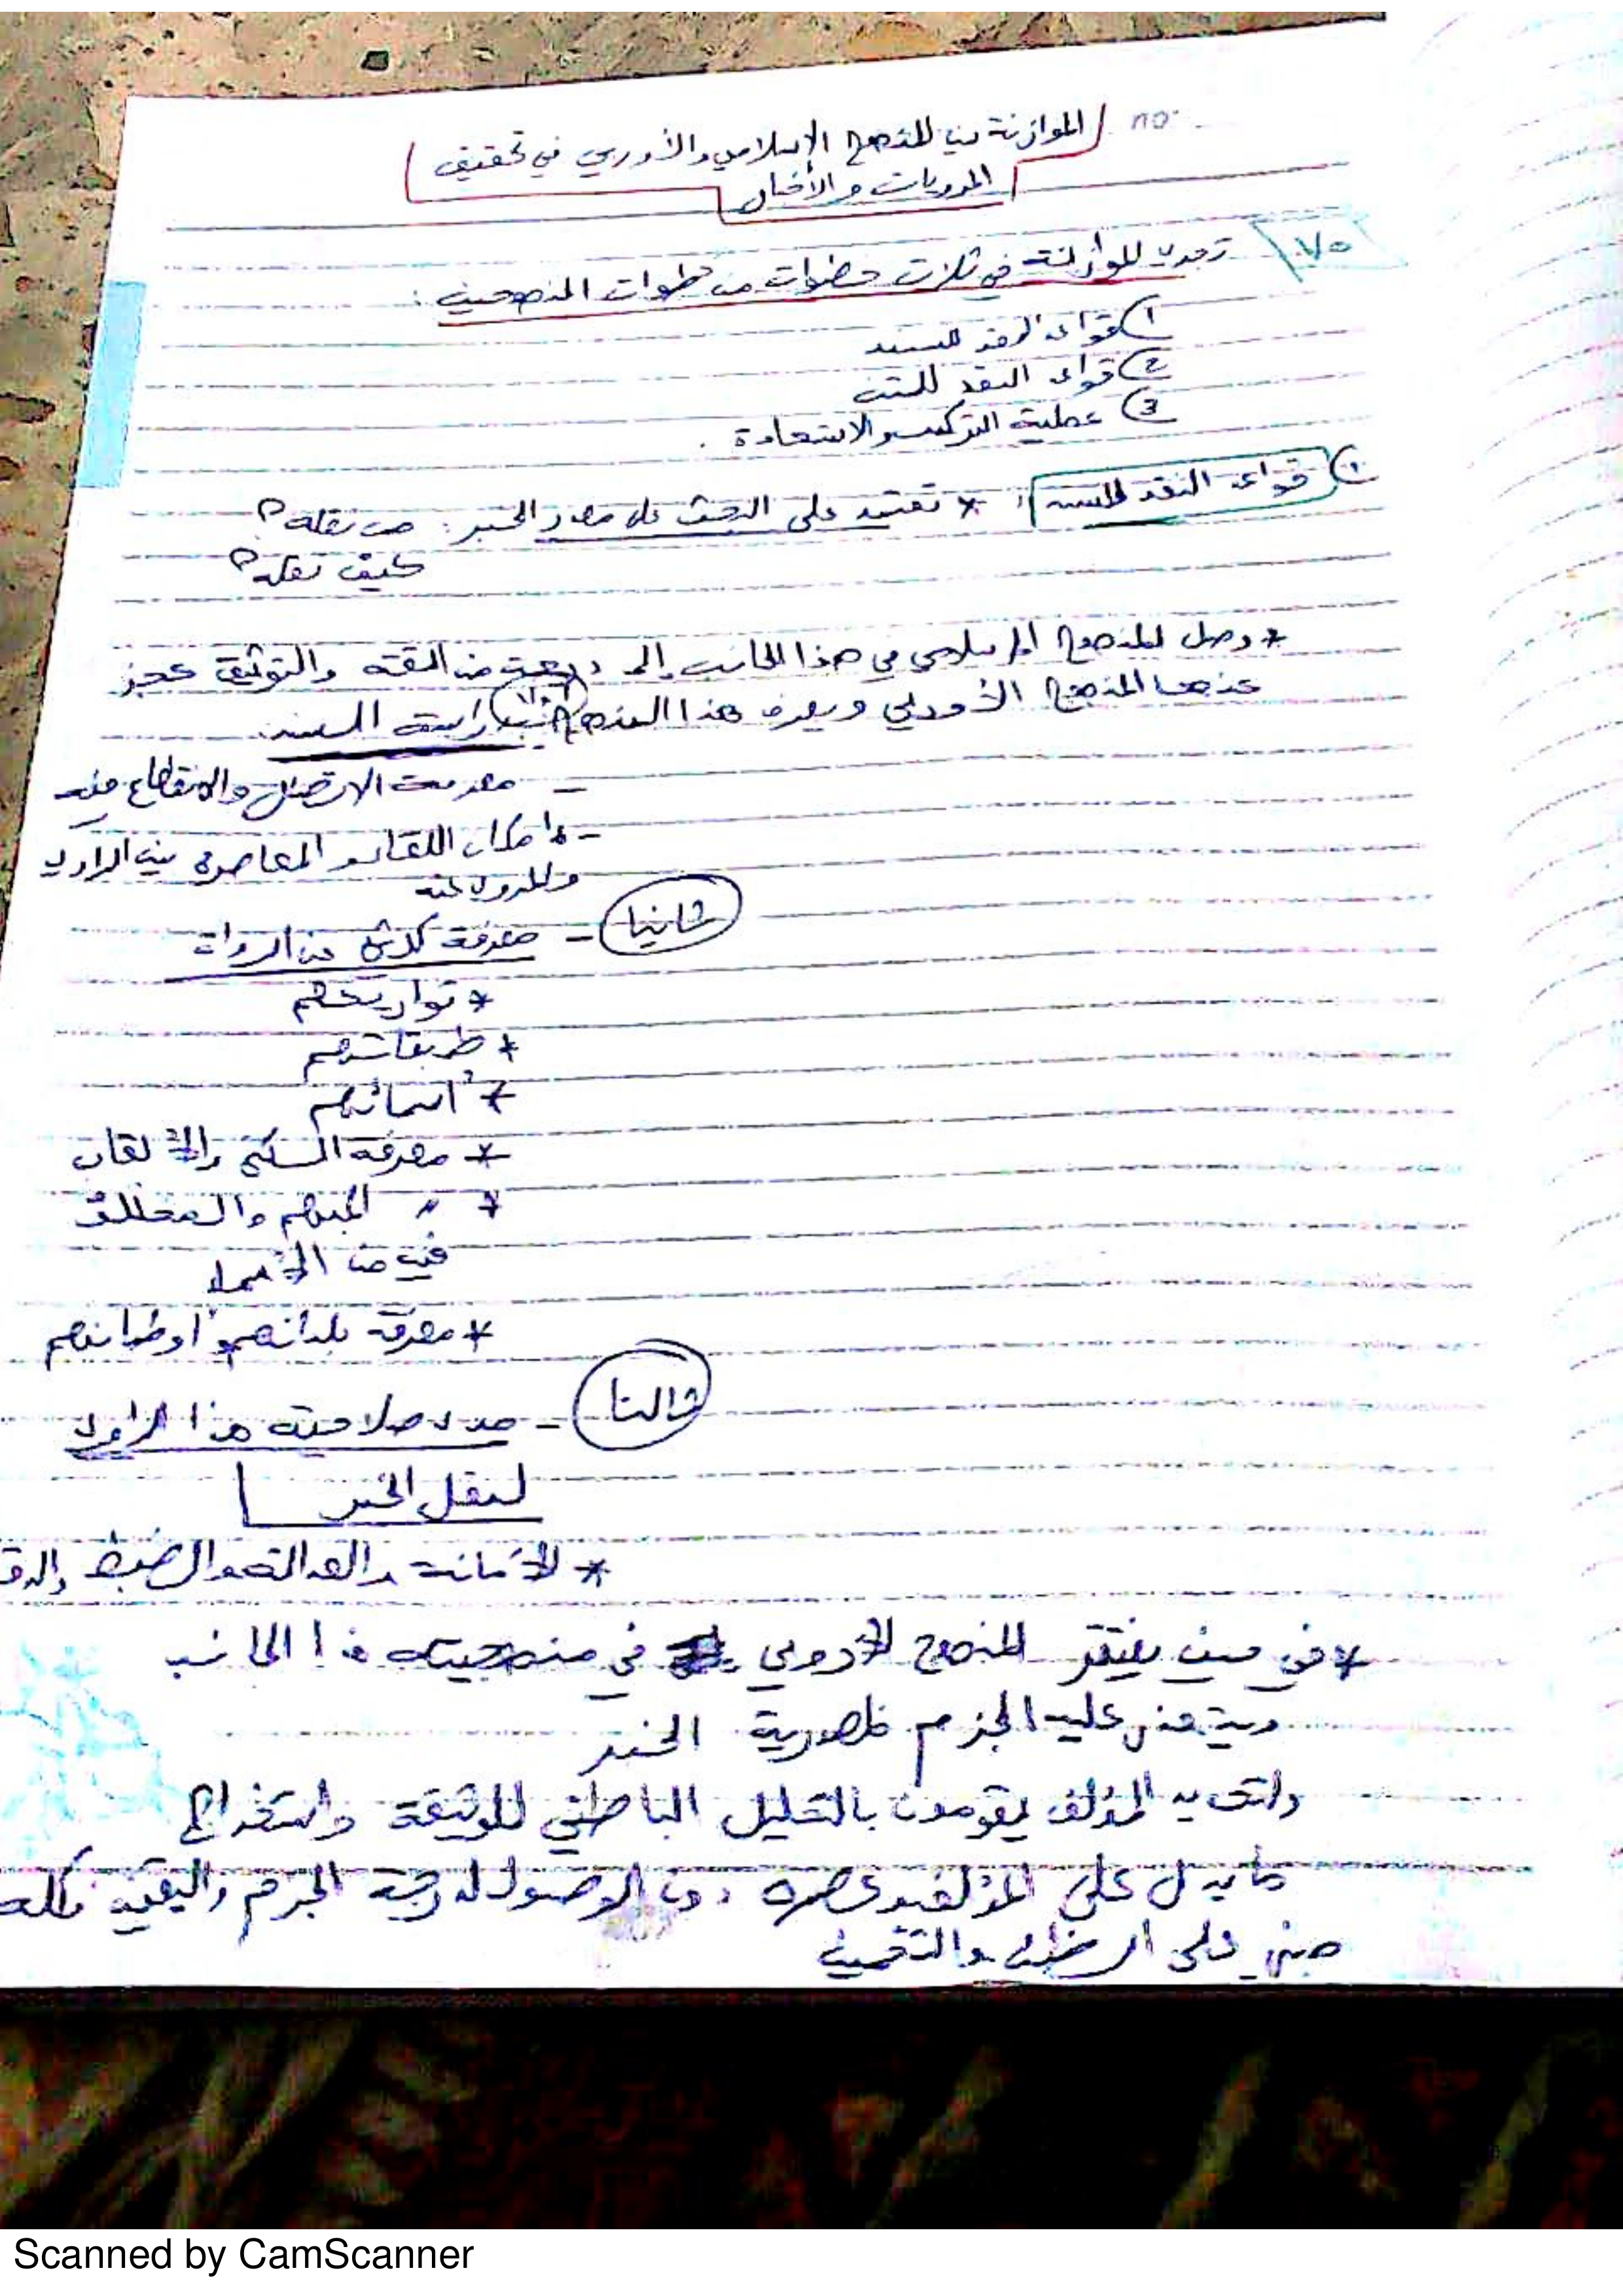 الموازنة بين المنهج الإسلامي والأوربي في تحقيق
المرويات والأخبار
no.
٧٥ تجري الموازنة في ثلاث خطوات من خطوات المنهجين :
١) قواعد النقد للسند
2) قواعد النقد للمتن
3) عملية التركيب والاستعادة .
١) قواعد النقد للسند : * تعتمد على البحث عن مصدر الخبر : من نقله؟
كيف نقله؟
* وصل المنهج الإسلامي في هذا الجانب إلى درجة من الثقة والتوثيق عجز
عنها المنهج الأوربي ويعرف هذا المنهج بدراسة السند
- معرفة الاتصال والانقطاع فيه
- امكان اللقاء والمعاصرة بين الراوي
والمروي عنه
ثانيا - معرفة كل شئ عن الرواة
* تواريخهم
* طبقاتهم
* أسمائهم
* معرفة الكنى والألقاب
* " المبهم والمختلف
فيه من الأسماء
* معرفة بلدانهم وأوطانهم
ثالثا - مدى صلاحية هذا الراوي
لنقل الخبر
* الأمانة والعدالة والضبط
* في حين يفتقر المنهج الأوربي في منهجيته هذا الجانب
عليه الجزم بمصدرية الخبر
ولتحديد المؤلف يقومون بالتحليل الباطني للوثيقة واستخراج
ما يدل على المؤلف وعصره دون الوصول لدرجة الجزم واليقين
مبني على الظن والتخمين
Scanned by CamScanner